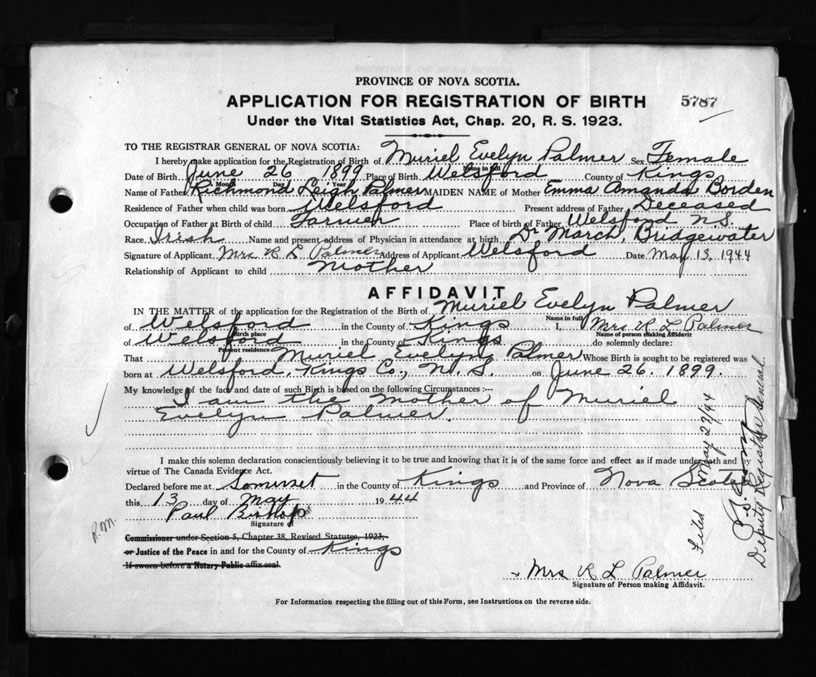 PROVINCE OF NOVA SCOTIA.
APPLICATION FOR REGISTRATION OF BIRTH 5787
Under the Vital Statistics Act, Chap. 20, R. S. 1923.
TO THE REGISTRAR GENERAL OF NOVA SCOTIA:
I hereby make application for the Registration of Birth of Muriel Evelyn Palmer Sex Female
Name in full
Date of Birth June 26 1899 Place of Birth Welsford County of Kings
Month Day Year
Name of Father Richmond Leigh Palmer MAIDEN NAME of Mother Emma Amanda Borden
Residence of Father when child was born Welsford Present address of Father Deceased
Occupation of Father at Birth of child Farmer Place of birth of Father Welsford N.S.
Race Irish Name and present address of Physician in attendance at birth Dr March, Bridgewater
Signature of Applicant Mrs R L Palmer Address of Applicant Welsford Date May 13, 1944
Relationship of Applicant to child Mother
AFFIDAVIT
IN THE MATTER of the application for the Registration of the Birth of Muriel Evelyn Palmer
Name in full
of Welsford in the County of Kings I, Mrs R L Palmer
Birth place Name of person making Affidavit
of Welsford in the County of Kings do solemnly declare:
Present residence
That Muriel Evelyn Palmer Whose Birth is sought to be registered was
born at Welsford, Kings Co., N. S. on June 26. 1899.
My knowledge of the fact and date of such Birth is based on the following Circumstances :--
I am the mother of Muriel
Evelyn Palmer.
I make this solemn declaration conscientiously believing it to be true and knowing that it is of the same force and effect as if made under oath and
virtue of The Canada Evidence Act.
Declared before me at Somerset in the County of Kings and Province of Nova Scotia
this 13 day of May 1944
Paul Bishop
Signature of
R.M.
Commissioner under Section 5, Chapter 38, Revised Statutes, 1923,
or Justice of the Peace in and for the County of Kings
If sworn before a Notary Public affix seal.
Mrs R L Palmer
Signature of Person making Affidavit.
For Information respecting the filling out of this Form, see Instructions on the reverse side.
Filed May 29/44
Deputy Registrar General.